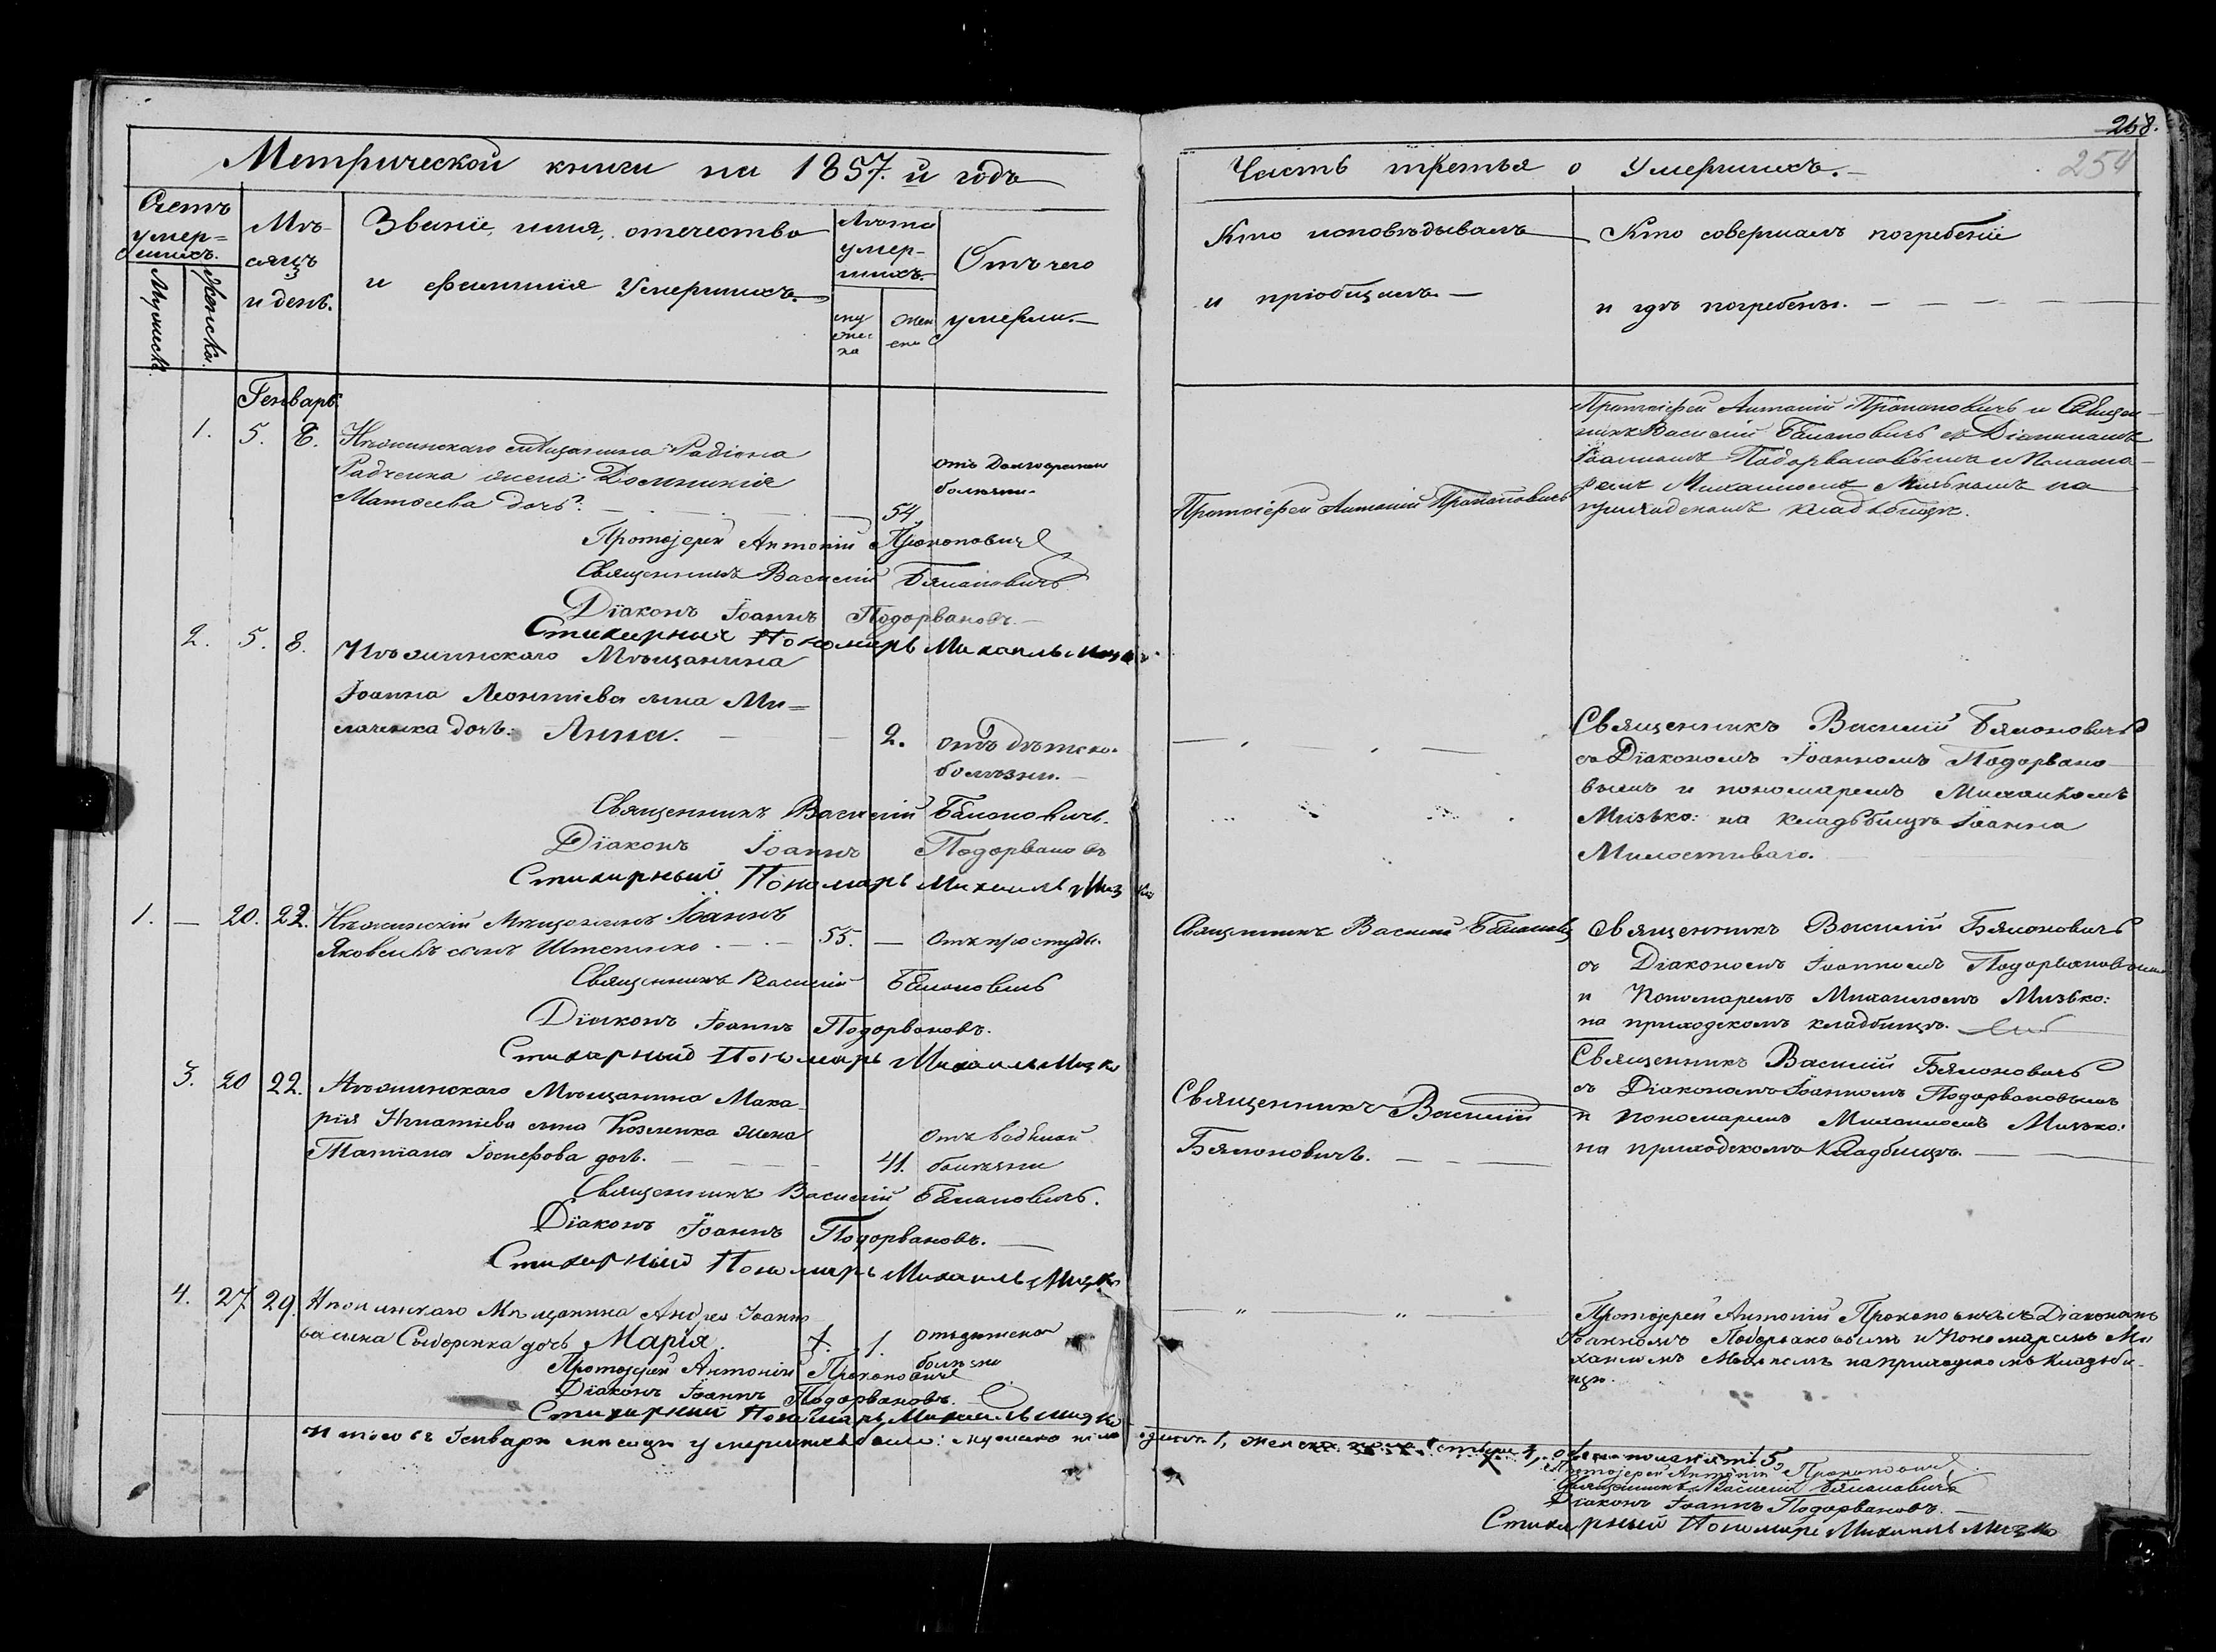 Метрической книги на 1857.й годъ
Счетъ
умер=
шихъ.
Мужеска.
Женска.
Мѣ-
сяцъ
и день.
Званіе, имя, отечество
и фамилія Умершихъ.
Лѣта
умер-
шихъ.
му
жес
ка
жен
ска
Отъ чего
умерли.
Генварь.
1. 5. 8. Нѣжинскаго мѣщанина Радіона
Радченка жена Домникія
Матѳеева дочь. 54
отъ долговременн
болѣзни.
Протоіерей Антоній Прокоповичъ
Священникъ Василій Бѧлоновичъ
Діаконъ Іоаннъ Подорвановъ.
Стихарный Пономарь Михаилъ Мизко
2. 5. 8. Нѣжинскаго Мѣщанина
Іоанна Леонтіева сына Ми=
дочь: Анна. 2. отъ дѣтской
болѣзни.
Священникъ Василій
Діаконъ Іоаннъ Подорвановъ
Стихарный Пономарь Михаилъ Мизко
1. — 20. 22. Нѣжинскій Мѣщанинъ Іоаннъ
Яковлевъ сынъ 55. — Отъ простуды.
Священникъ Василій
Діаконъ Іоаннъ Подорвановъ.
Стихарный Пономарь Михаилъ Мизко
3. 20 22. Нѣжинскаго Мѣщанина Мака
рія Игнатіева сына Козленка жена
Татіана Іосифова дочь. 41. Отъ водяной
болѣзни
Священникъ Василій
Діаконъ Іоаннъ Подорвановъ.
Стихарный Пономарь Михаилъ Мизко
4. 27 29. Нѣжинскаго Мѣщанина Андрея Іоанно
ва сына Сидоренка дочь Марія. 1. отъ дѣтской
болѣзни
Протоіерей Антоній Прокоповичъ
Діаконъ Іоаннъ Подорвановъ.
Стихарный Пономарь Михаилъ Мизко
Итого въ Генварѣ мѣсяцѣ умершихъ было: мужеска пола одинъ 1, женска пола четыре 4, обоего пола пять 5
268.
254
Часть третья о Умершихъ.
Кто исповѣдывалъ
и пріобщалъ.
Кто совершалъ погребеніе
и гдѣ погребены.
Протоіерей Антоній Прокоповичъ
Протоіерей Антоній Прокоповичъ и Священ
никъ Василій съ Діакономъ
Іоанномъ Подорвановымъ и Понома
ремъ Михаиломъ Мизькомъ на
приходскомъ кладбищѣ.
Священникъ Василій
съ Діакономъ Іоанномъ Подорвано
вымъ и пономаремъ Михаиломъ
Мизько: на кладбищѣ Іоанна
Милостиваго.
Священникъ Василій
Священникъ Василій
съ Діакономъ Іоанномъ Подорвановымъ
и Пономаремъ Михаиломъ Мизько:
на приходскомъ кладбищѣ.
Священникъ Василій
Священникъ Василій
съ Діакономъ Іоанномъ Подорвановымъ
и пономаремъ Михаиломъ Мизько:
на приходскомъ Кладбищѣ.
Протоіерей Антоній Прокоповичъ съ Діакономъ
Іоанномъ Подорвановымъ и Пономаремъ Ми
хаиломъ Мизькомъ на приходскомъ Кладби-
щѣ.
Протоіерей Антоній Прокоповичъ
Священникъ Василій
Діаконъ Іоаннъ Подорвановъ.
Стихарный Пономарь Михаилъ Мизко